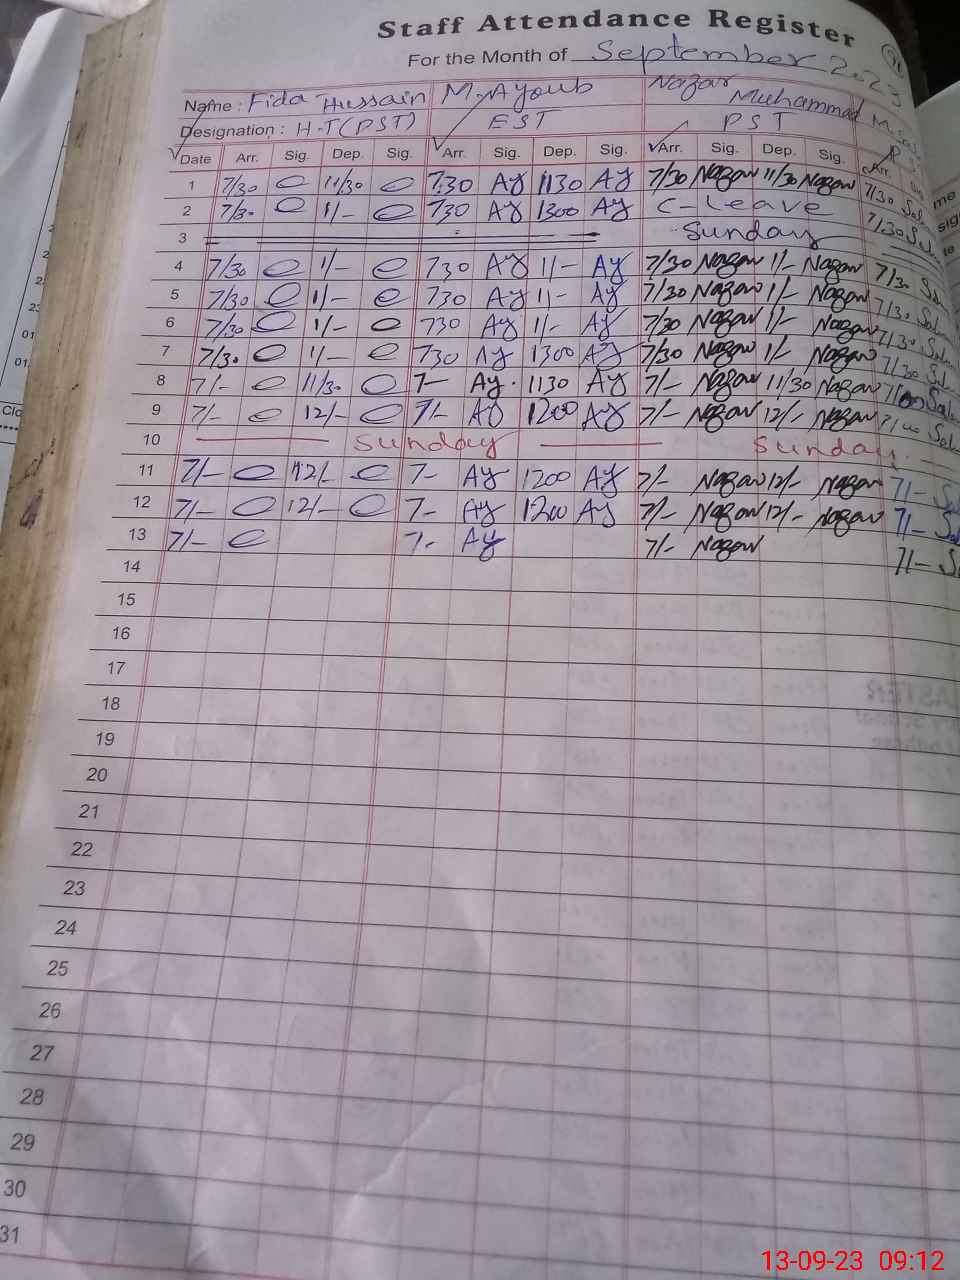 Staff Attendance Register
For the Month of September 2023
Name: Fida Hussain M. Ayoub Nazar Muhammad
Designation: H-T (PST) EST PST
Date Arr. Sig. Dep. Sig. Arr. Sig. Dep. Sig. Arr. Sig. Dep. Sig. Arr.
1 7/30 11/30 7:30 Ay 1130 Ay 7/30 Nazar 11/30 Nazar 7/30
2 7/30 1/- 730 Ay 1300 Ay C-Leave 7/30
3 Sunday
4 7/30 1/- 730 Ay 1/- Ay 7/30 Nazar 1/- Nazar 7/30
5 7/30 1/- 730 Ay 1/- Ay 7/30 Nazar 1/- Nazar 7/30
6 7/30 1/- 730 Ay 1/- Ay 7/30 Nazar 1/- Nazar 7/30
7 7/30 1/- 730 Ay 1300 Ay 7/30 Nazar 1/- Nazar 7/30
8 7/- 11/30 7- Ay. 1130 Ay 7/- Nazar 11/30 Nazar
9 7/- 12/- 7/- Ay 1200 Ay 7/- Nazar 12/- Nazar
10 Sunday Sunday
11 7/- 12/- 7- Ay 1200 Ay 7/- Nazar 12/- Nazar 7/-
12 7/- 12/- 7- Ay 1200 Ay 7/- Nazar 12/- Nazar 7/-
13 7/- 7- Ay 7/- Nazar 7/-
14
15
16
17
18
19
20
21
22
23
24
25
26
27
28
29
30
31
13-09-23 09:12